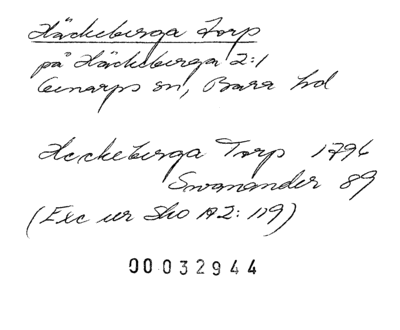 Häckeberga Torp
på Häckeberga 2:1
Genarps sn, Bara hd
Heckeberga Torp 1796
Svanander 89
(Exc ur Sko A2: 119)
00032944